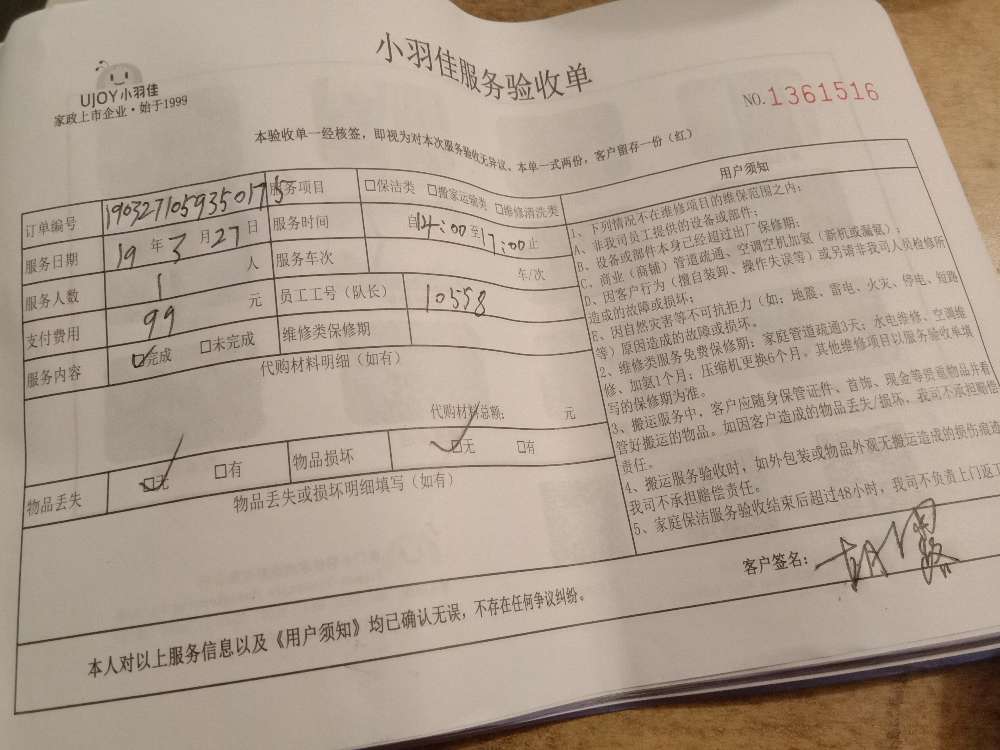 小羽佳服务验收单
UJOY小羽佳
家政上市企业·始于1999
NO.1361516
本验收单一经核签，即视为对本次服务验收无异议、本单一式两份，客户留存一份（红）
订单编号 1903271059350175 服务项目 □保洁类 □搬家运输类 □维修清洗类
服务日期 19 年 3 月 27 日 服务时间 自 14:00 至 17:00 止
服务人数 1 人 服务车次 车/次
支付费用 99 元 员工工号（队长） 10558
服务内容 ☑完成 □未完成 维修类保修期
代购材料明细（如有）
代购材料总额： 元
物品丢失 ☑无 □有 物品损坏 ☑无 □有
物品丢失或损坏明细填写（如有）
用户须知
1、下列情况不在维修项目的维保范围之内：
A、非我司员工提供的设备或部件；
B、设备或部件本身已经超过出厂保修期；
C、商业（商铺）管道疏通、空调空机加氨（新机或漏氨）；
D、因客户行为（擅自装卸、操作失误等）或另请非我司人员检修所
造成的故障或损坏；
E、因自然灾害等不可抗拒力（如：地震、雷电、火灾、停电、短路
等）原因造成的故障或损坏。
2、维修类服务免费保修期：家庭管道疏通3天；水电维修、空调维
修、加氨1个月；压缩机更换6个月。其他维修项目以服务验收单填
写的保修期为准。
3、搬运服务中，客户应随身保管证件、首饰、现金等贵重物品并看
管好搬运的物品。如因客户造成的物品丢失/损坏，我司不承担赔偿
责任。
4、搬运服务验收时，如外包装或物品外观无搬运造成的损伤痕迹
我司不承担赔偿责任。
5、家庭保洁服务验收结束后超过48小时，我司不负责上门返工
客户签名：
本人对以上服务信息以及《用户须知》均已确认无误，不存在任何争议纠纷。